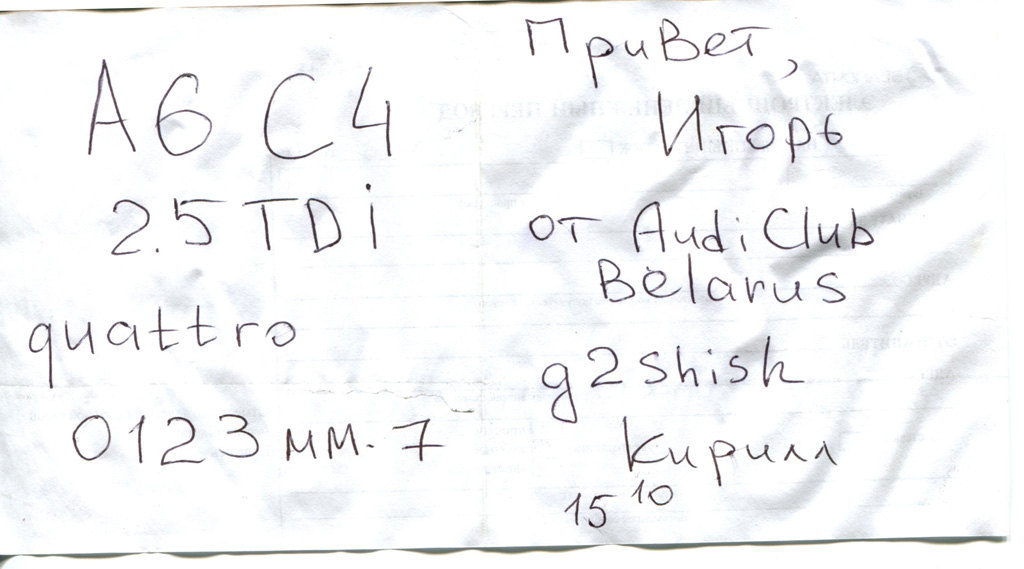 A6 C4
2.5 TDi
quattro
0123 мм. 7
Привет,
Игорь
от Audi Club
Belarus
g2shisk
Кирилл
15 10